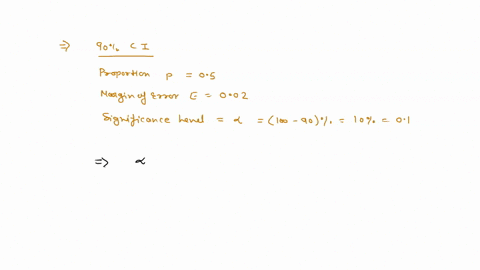 ⇒ 90% C I
Proportion p = 0.5
Margin of Error E = 0.02
Significance Level = α = (100 - 90)% = 10% = 0.1
⇒ α